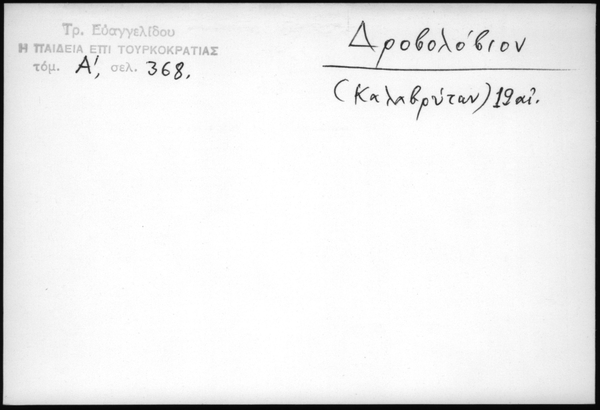 Τρ. Εὐαγγελίδου
Η ΠΑΙΔΕΙΑ ΕΠΙ ΤΟΥΡΚΟΚΡΑΤΙΑΣ
τόμ. Α', σελ. 368.
Δροβολόβιον
(Καλαβρύτων) 19 αἰ.